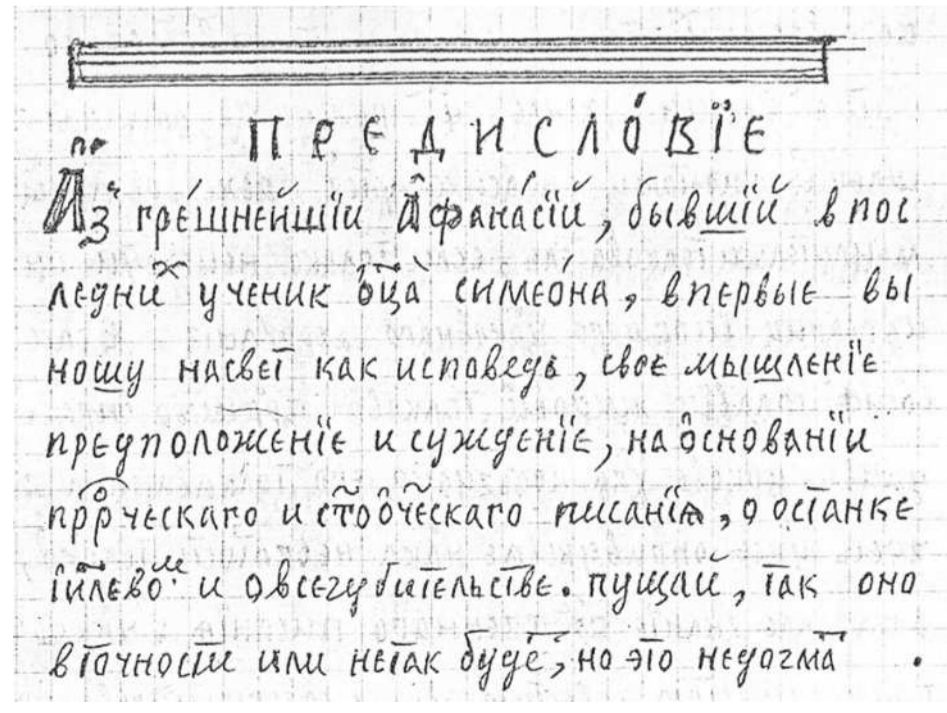 ПРЕДИСЛО́ВЇЕ
пр
Аз грѐшнейшїй Афана́сїй, бывшїй в пос
ледни х ученик оца симео́на, впервые вы
ношу насвет как исповедь, свое мышленїе
предположенїе и сужденїе, на основанїи
пррческаго и стоо̑ческаго писанїя, о останке
їилево м и овсегубительстве. пущай, так оно
вточности или нетак буде, но это недогма .